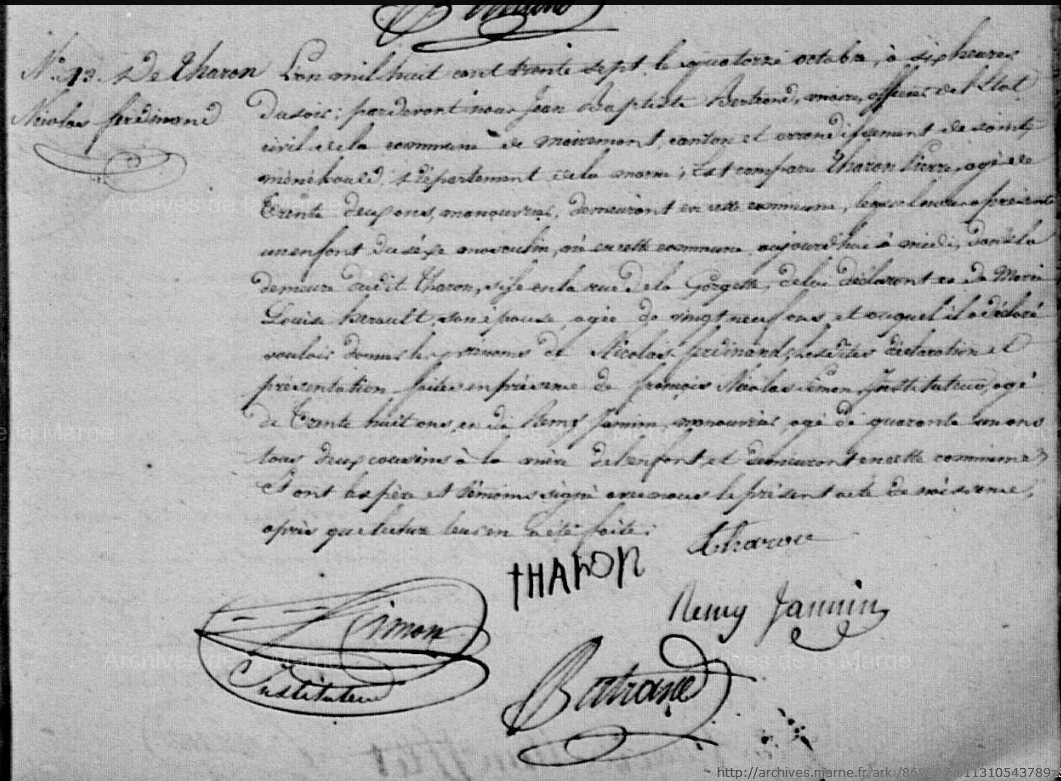 N° 13. De Tharon
Nicolas ferdinand
L'an mil huit cent trente sept le quatorze octobre, à six heures
du soir: pardevant nous Jean Baptiste Bertrand, maire, officier de l'Etat
civil de la commune de moiremont, canton et arrondissement de sainte
ménéhould, département de la marne, Est comparu Tharon Pierre, agé de
Trente deux ans, manouvrier, demeurant en cette commune, lequel nous a présenté
un enfant du séxe masculin, né en cette commune aujourd'hui à midi, dans la
demeure dudit Tharon, sise en la rue de la Gorgette, de lui déclarant et de Marie
Louise herault, son épouse, agée de vingt neuf ans, et auquel il a déclaré
vouloir donner les prénoms de Nicolas ferdinand; lesdites déclaration et
présentation faites en présence de françois Nicolas Simon, Instituteur, agé
de Trente huit ans, et de Remy Jannin, manouvrier, agé de quarante un ans
tous deux cousins à la mère de l'enfant, et demeurant en cette commune,
Et ont les père et témoins signé avec nous le présent acte de naissance,
après que lecture leur en a été faite.
Tharon
THARON
Remy Jannin
Simon
Instituteur
Bertrand
Archives de la Marne
de la Marne
Archives de la Marne
Archives de la Marne
http://archives.marne.fr/ark:/86